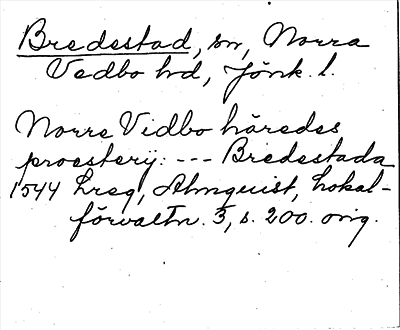 Bredestad, sn, Norra
Vedbo hd, Jönk. l.
Norre Vidbo häredes
proesterij: --- Bredestada
1544 Lreg, Almquist, Lokal-
förvaltn. 3, s. 200. orig.